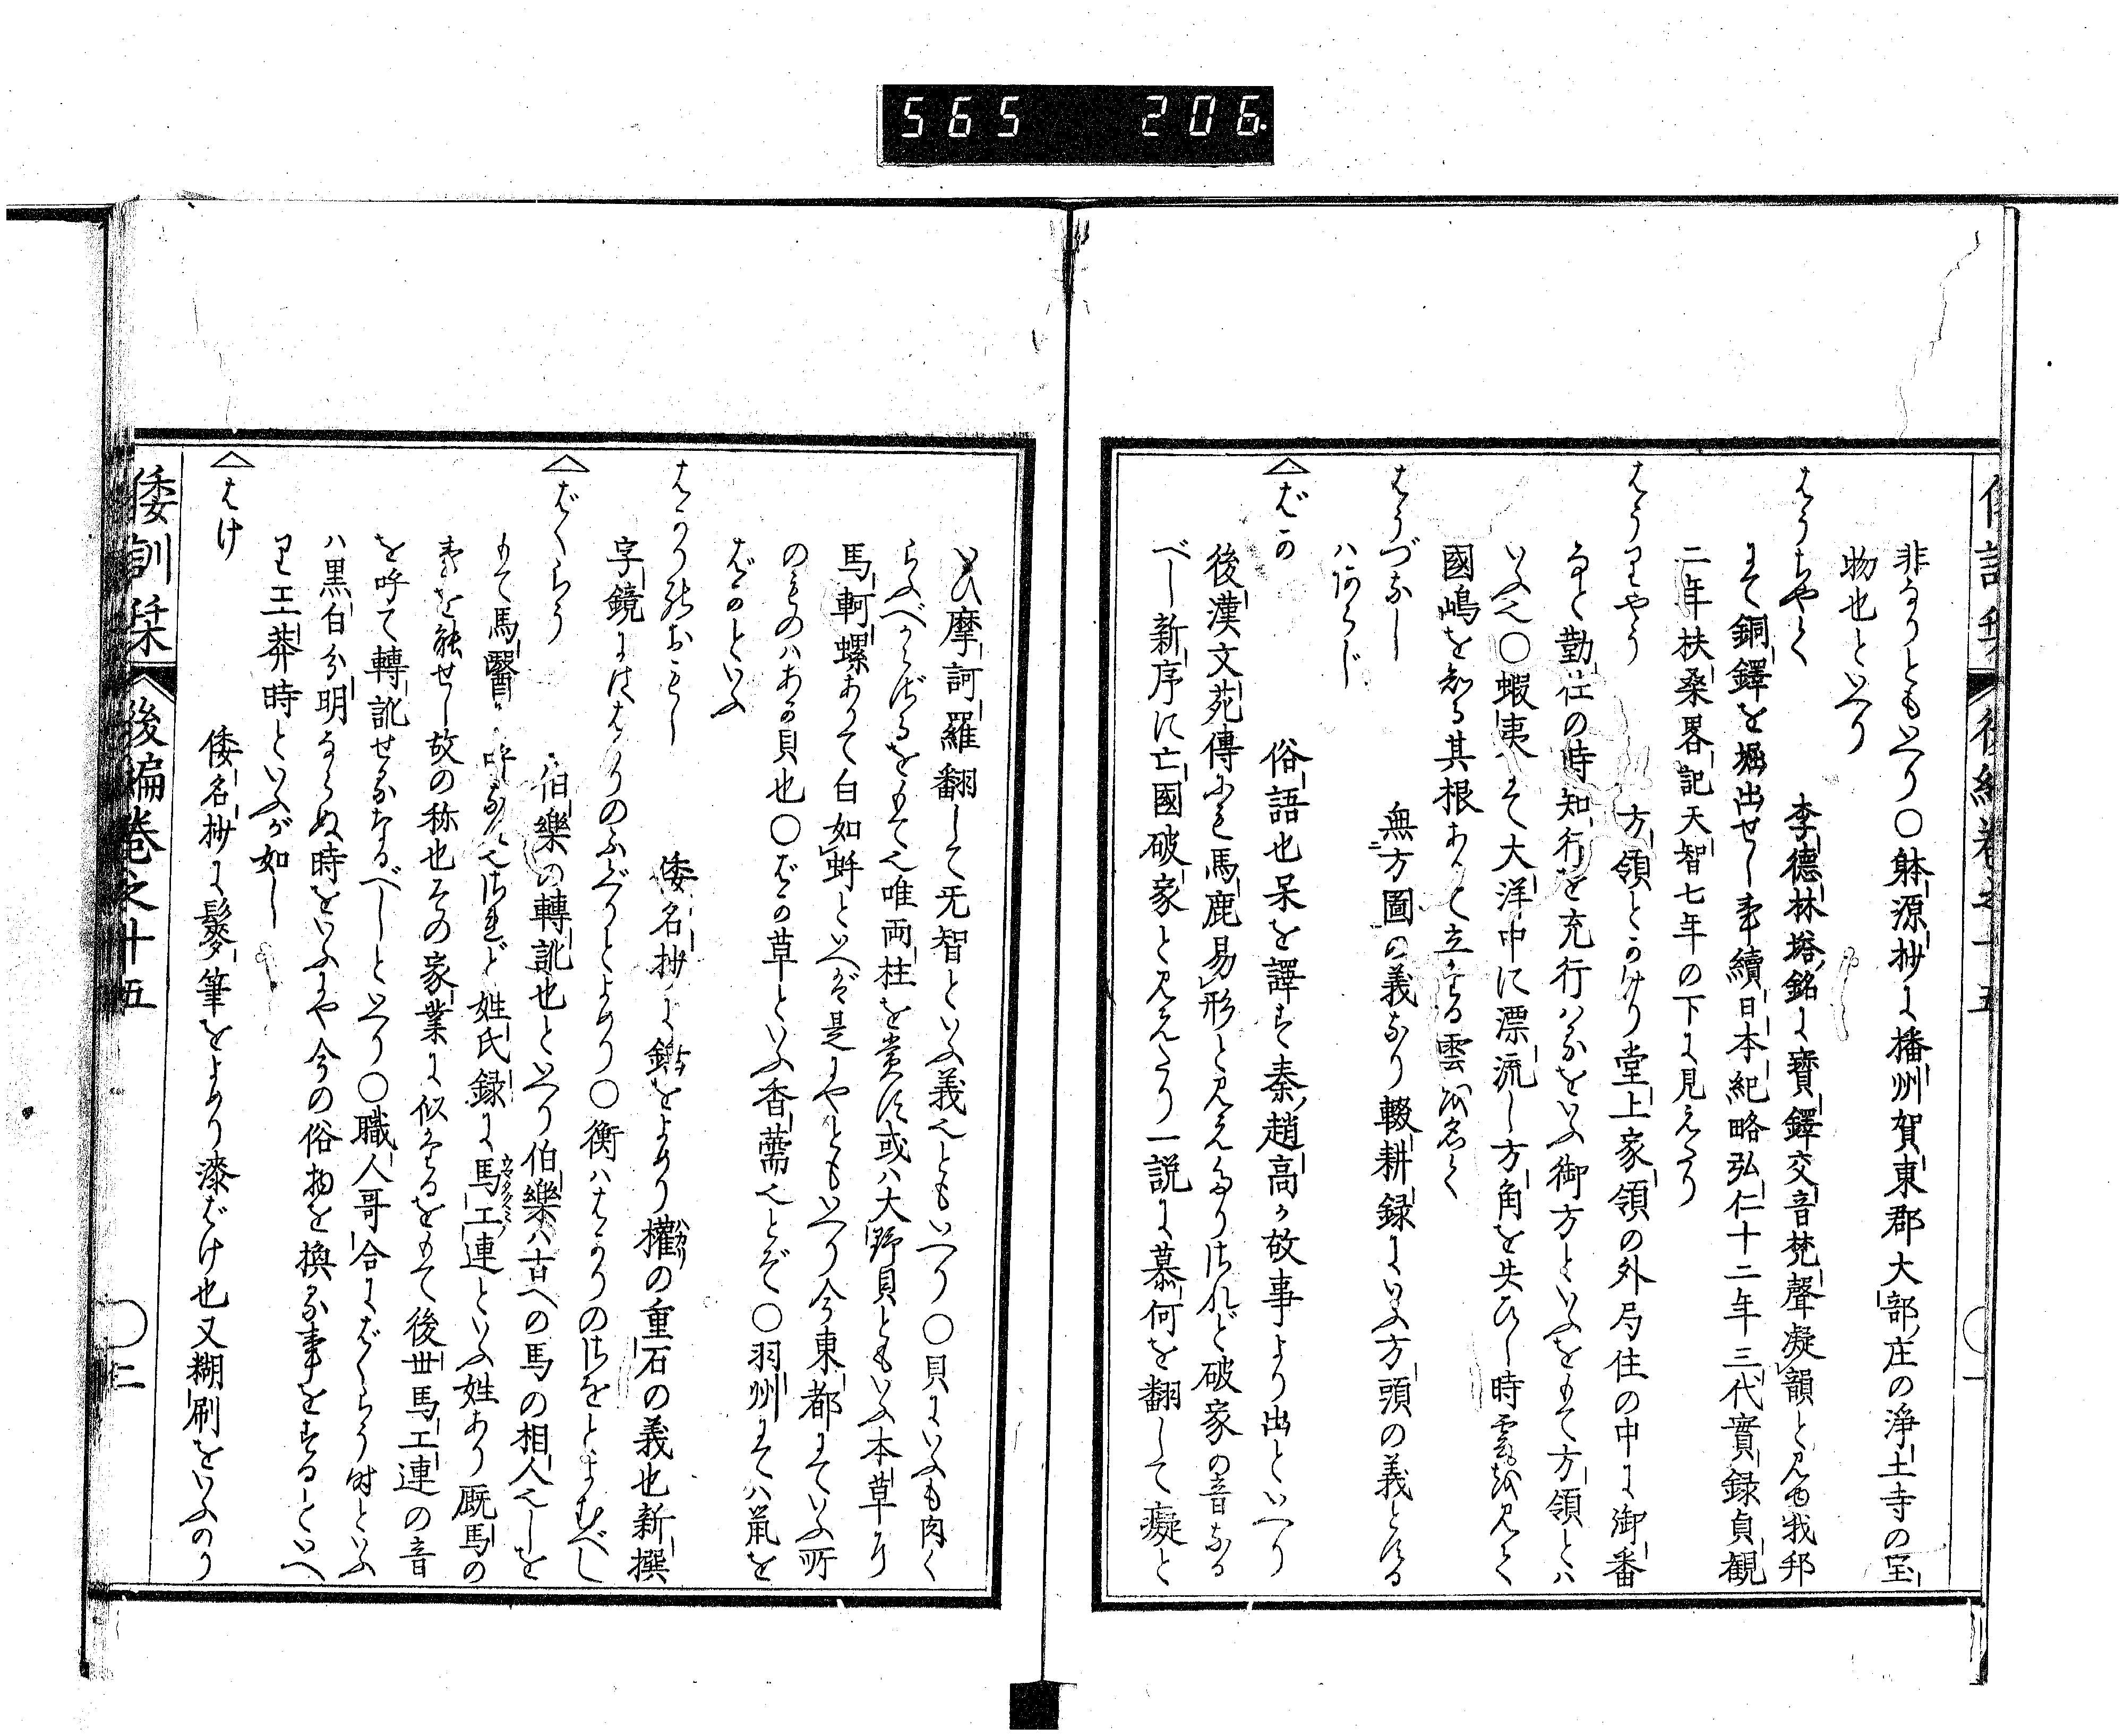 565 206.
非なりともいへり〇躰源抄に播州賀東郡大部庄の浄土寺の宝
物也といへり
はうちやく 李德林塔銘に寶鐸交音梵聲凝韻と見ゆ我邦
にて銅鐸を堀出せし事續日本紀略弘仁十二年三代實録貞觀
二年扶桑畧記天智七年の下に見えたり
はうりやう 方領とかけり堂上家領の外局住の中に御番
なく勤仕の時知行を充行ハるをいふ御方といふをもて方領とハ
いふ也〇蝦夷にて大洋中に漂流し方角を失ひし時雲を見て
國嶋を知る其根ありて立たる雲を名く
はうづなし 無方圖の義なり輟耕録にいふ方頭の義とする
ハ
ばか 俗語也呆を譯す秦趙高か故事より出といへり
後漢文苑傳にも馬鹿易形と見えたりされど破家の音なる
べし新序に亡國破家と見えたり一説に慕何を翻して癡と
いひ摩訶羅翻して无智といふ義也ともいへり〇貝にいふも肉く
らふべからざるをもて也唯両柱を賞す或ハ大野貝ともいふ本草に
馬軻螺ありて白如蚌といへば是にやともいへり今東都にていふ所
のものハあか貝也〇ばか草といふ香薷也とぞ〇羽州にてハ鼠を
ばかのといふ
はかりのおもし 倭名抄に錘をよめり權の重石の義也新撰
字鏡にはばかりのふぐりとよめり〇衡ハはかりのさをとよむべし
ばくらう 伯樂の轉訛也といへり伯樂ハ古への馬の相人也しを
もて馬醫に呼なせ也されど姓氏録に馬工連といふ姓あり厩馬の
事を能せし故の称也その家業に似たるをもて後世馬工連の音
を呼て轉訛せるなるべしといへり〇職人哥合にばくらう時といふ
ハ黒白分明ならぬ時をいふにや今の俗物を換る事をするといへ
り王莽時といふが如し
はけ 倭名抄に髹筆をよめり漆ばけ也又糊刷をいふのり
倭訓栞 後編巻之十五 〇二